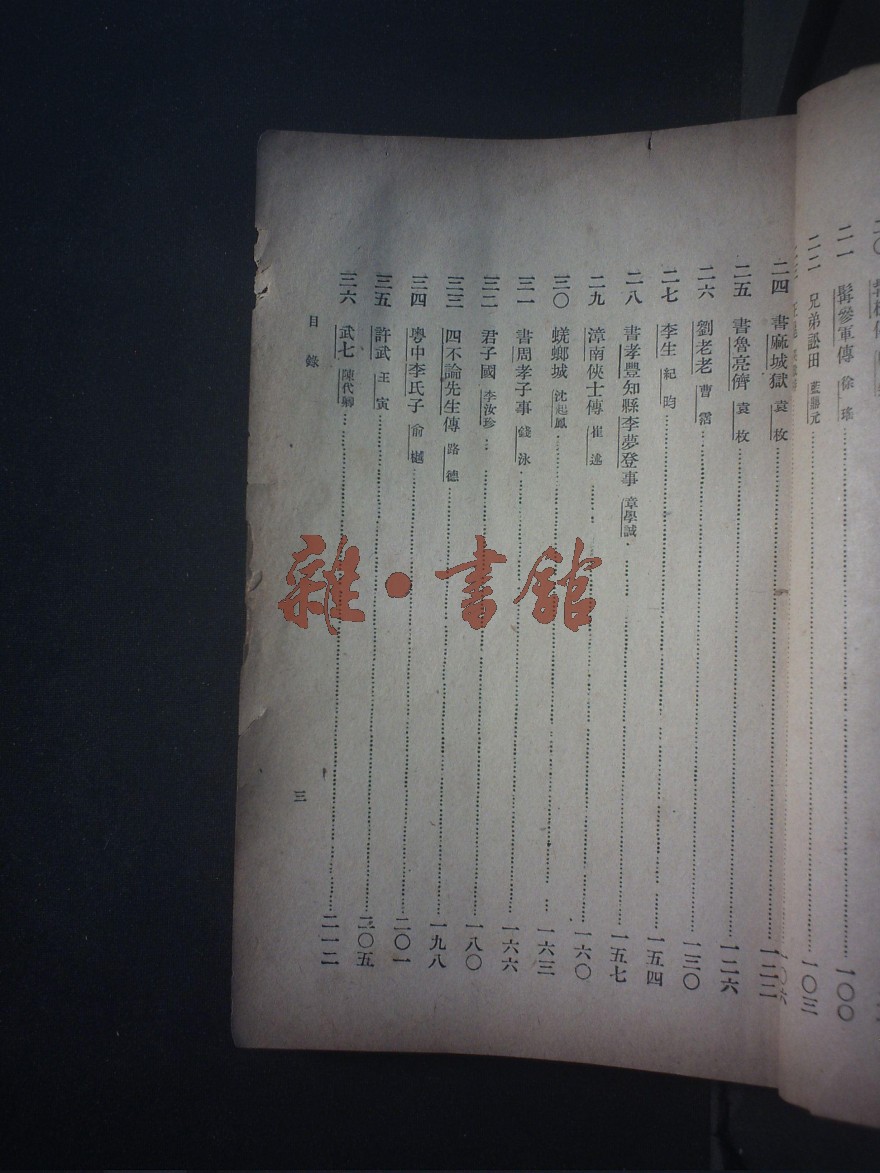 二一 髯參軍傳 徐瑤……一〇〇
二二 兄弟訟田 藍鼎元……一〇三
二四 書麻城獄 袁枚……一二二
二五 書魯亮儕 袁枚……一二六
二六 劉老老 曹霑……一三〇
二七 李生 紀昀……一五四
二八 書孝豐知縣李夢登事 章學誠……一五七
二九 漳南俠士傳 崔述……一六〇
三〇 蜣螂城 沈起鳳……一六三
三一 書周孝子事 錢泳……一六六
三二 君子國 李汝珍……一八〇
三三 四不論先生傳 路德……一九八
三四 粵中李氏子 俞樾……二〇一
三五 許武 王寅……二〇五
三六 武七 陳代卿……二一二
目錄
三
雜·書館